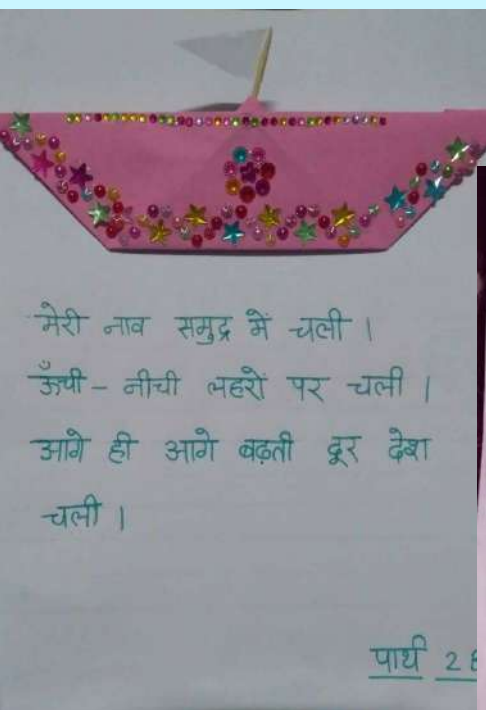 मेरी नाव समुद्र में चली ।
ऊँची - नीची लहरों पर चली ।
आगे ही आगे बढ़ती दूर देश
चली ।
पार्थ 2